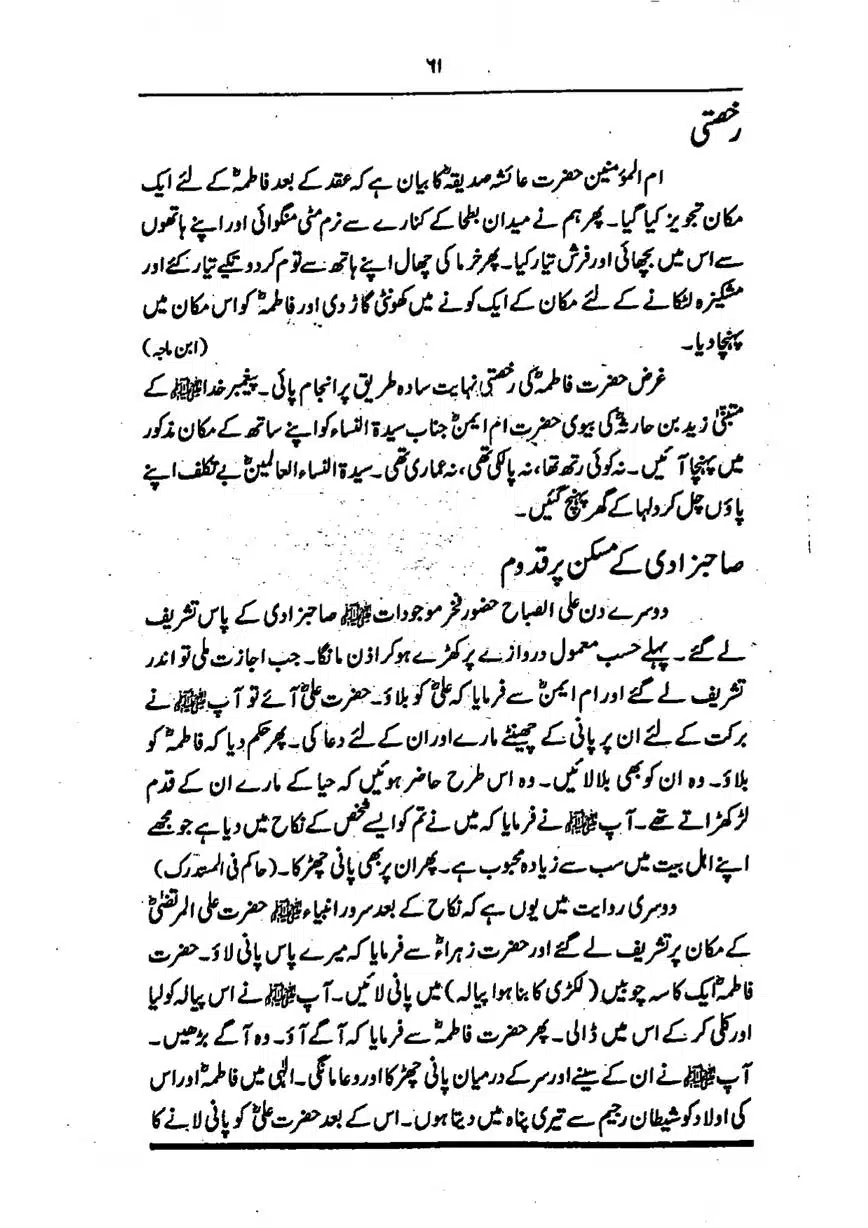 ۶۱
رخصتی
ام المؤمنین حضرت عائشہ صدیقہؓ کا بیان ہے کہ عقد کے بعد فاطمہؓ کے لئے ایک
مکان تجویز کیا گیا۔ پھر ہم نے میدان بطحا کے کنارے سے نرم مٹی منگوائی اور اپنے ہاتھوں
سے اس میں بچھائی اور فرش تیار کیا۔ پھر خرما کی چھال اپنے ہاتھ سے توم کر دو تکیے تیار کئے اور
مشکیزہ لٹکانے کے لئے مکان کے ایک کونے میں کھونٹی گاڑ دی اور فاطمہؓ کو اس مکان میں
پہنچا دیا۔ (ابن ماجہ)
غرض حضرت فاطمہؓ کی رخصتی نہایت سادہ طریق پر انجام پائی۔ پیغمبر خدا ﷺ کے
متبنّٰی زید بن حارثہؓ کی بیوی حضرت ام ایمنؓ جناب سیدۃ النساء کو اپنے ساتھ کے مکان مذکور
میں پہنچا آئیں۔ نہ کوئی رتھ تھا، نہ پالکی تھی، نہ عماری تھی۔ سیدۃ النساء العالمینؓ بے تکلف اپنے
پاؤں چل کر دولہا کے گھر پہنچ گئیں۔
صاحبزادی کے مسکن پر قدوم
دوسرے دن علی الصباح حضور فخر موجودات ﷺ صاحبزادی کے پاس تشریف
لے گئے۔ پہلے حسب معمول دروازے پر کھڑے ہو کر اذن مانگا۔ جب اجازت ملی تو اندر
تشریف لے گئے اور ام ایمنؓ سے فرمایا کہ علیؓ کو بلاؤ۔ حضرت علیؓ آئے تو آپ ﷺ نے
برکت کے لئے ان پر پانی کے چھینٹے مارے اور ان کے لئے دعا کی۔ پھر حکم دیا کہ فاطمہؓ کو
بلاؤ۔ وہ ان کو بھی بلا لائیں۔ وہ اس طرح حاضر ہوئیں کہ حیا کے مارے ان کے قدم
لڑکھڑاتے تھے۔ آپ ﷺ نے فرمایا کہ میں نے تم کو ایسے شخص کے نکاح میں دیا ہے جو مجھے
اپنے اہل بیت میں سب سے زیادہ محبوب ہے۔ پھر ان پر بھی پانی چھڑکا۔ (حاکم فی المستدرک)
دوسری روایت میں یوں ہے کہ نکاح کے بعد سرور انبیاء ﷺ حضرت علی المرتضیٰؓ
کے مکان پر تشریف لے گئے اور حضرت زہراءؓ سے فرمایا کہ میرے پاس پانی لاؤ۔ حضرت
فاطمہؓ ایک کاسہ چوبیں (لکڑی کا بنا ہوا پیالہ) میں پانی لائیں۔ آپ ﷺ نے اس پیالہ کو لیا
اور کلی کر کے اس میں ڈالی۔ پھر حضرت فاطمہؓ سے فرمایا کہ آگے آؤ۔ وہ آگے بڑھیں۔
آپ ﷺ نے ان کے سینے اور سر کے درمیان پانی چھڑکا اور دعا مانگی۔ الٰہی میں فاطمہؓ اور اس
کی اولاد کو شیطان رجیم سے تیری پناہ میں دیتا ہوں۔ اس کے بعد حضرت علیؓ کو پانی لانے کا